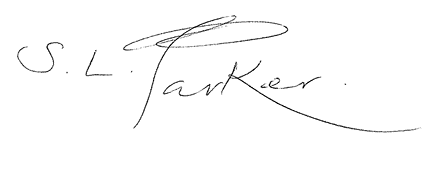 S. L. Parker.